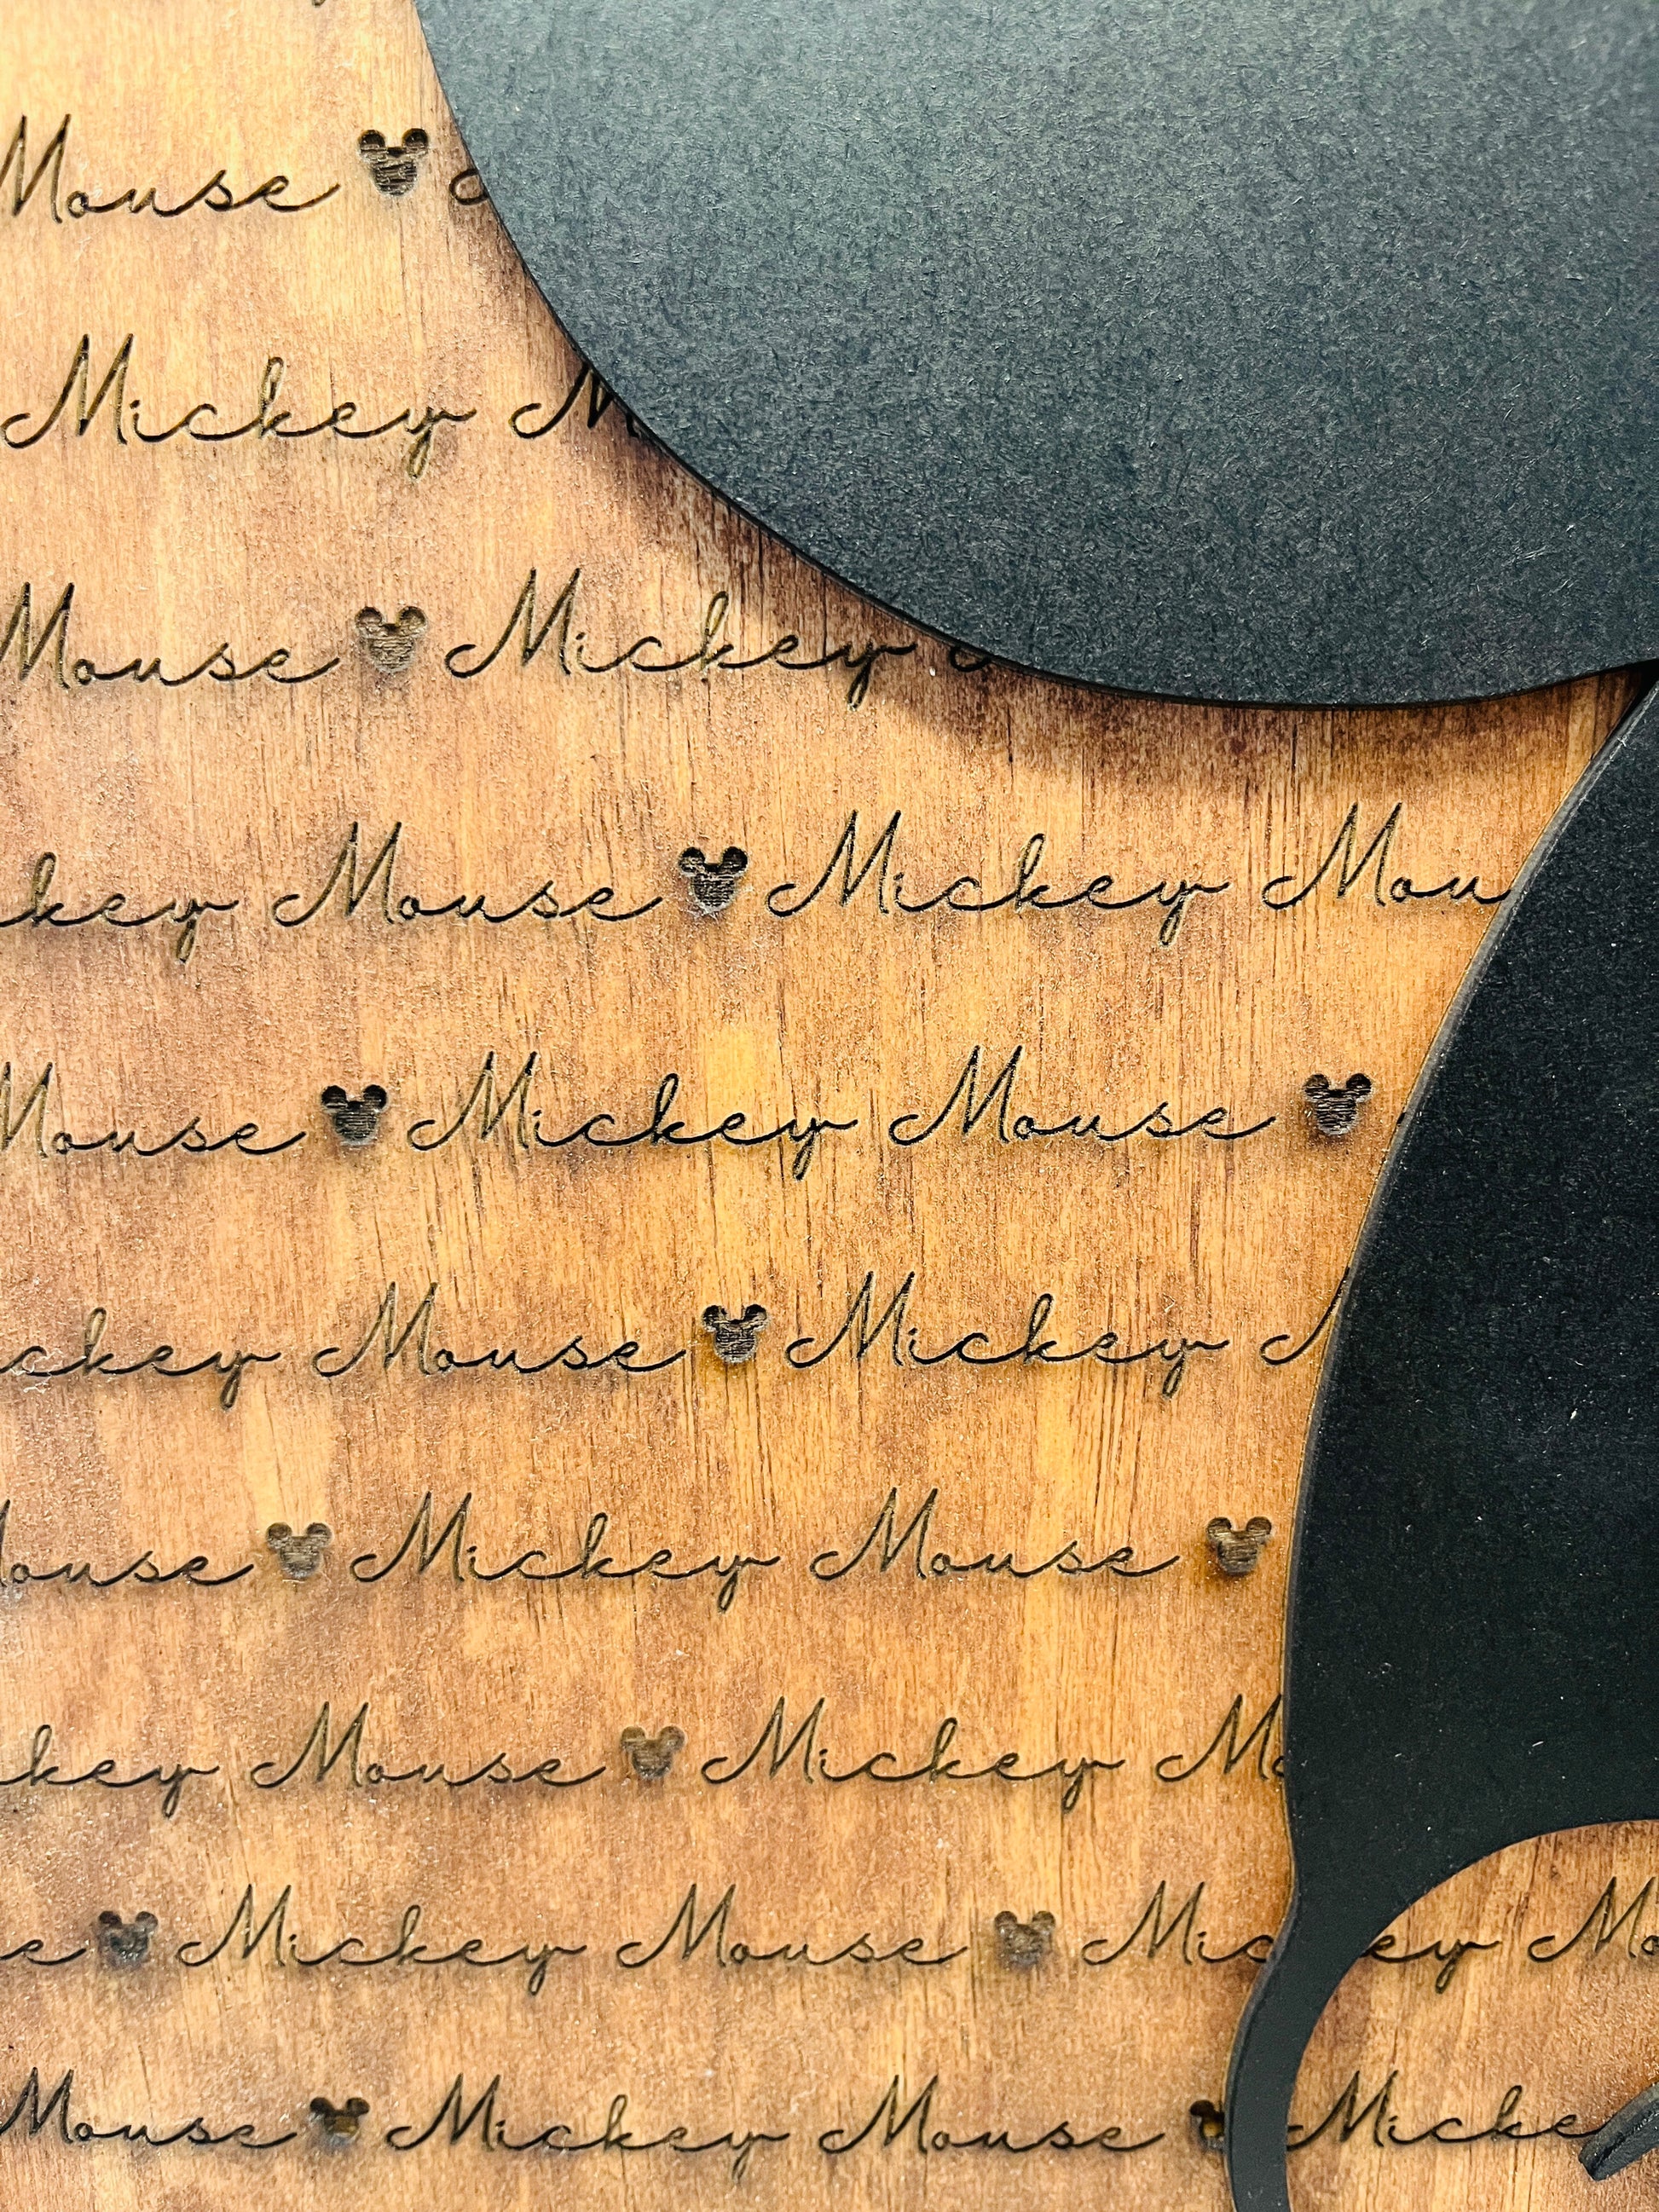 Mouse
Mickey
Mouse Mickey
Mouse Mickey Mou
Mouse Mickey Mouse
Mouse Mickey
Mouse Mickey Mouse
Mouse Mickey
Mickey Mouse
Mouse Mickey Mouse Micke